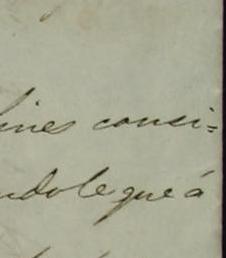 fines consi=
ndole que á